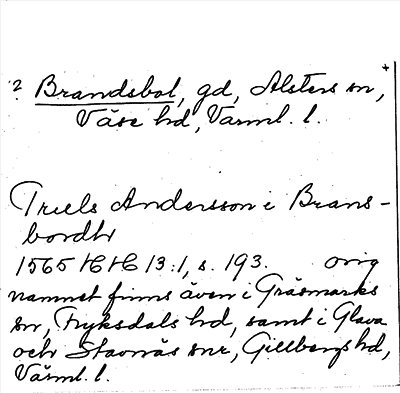 ? Brandsbol, gd, Alsters sn, +
Väse hd, Värml. l.
Truls Andersson i Brans-
bordhr
1565 HH 13:1, s. 193. orig
namnet finns även i Gräsmarks
sn, Fryksdals hd, samt i Glava
och Stavnäs snr, Gillbergs hd,
Värml. l.